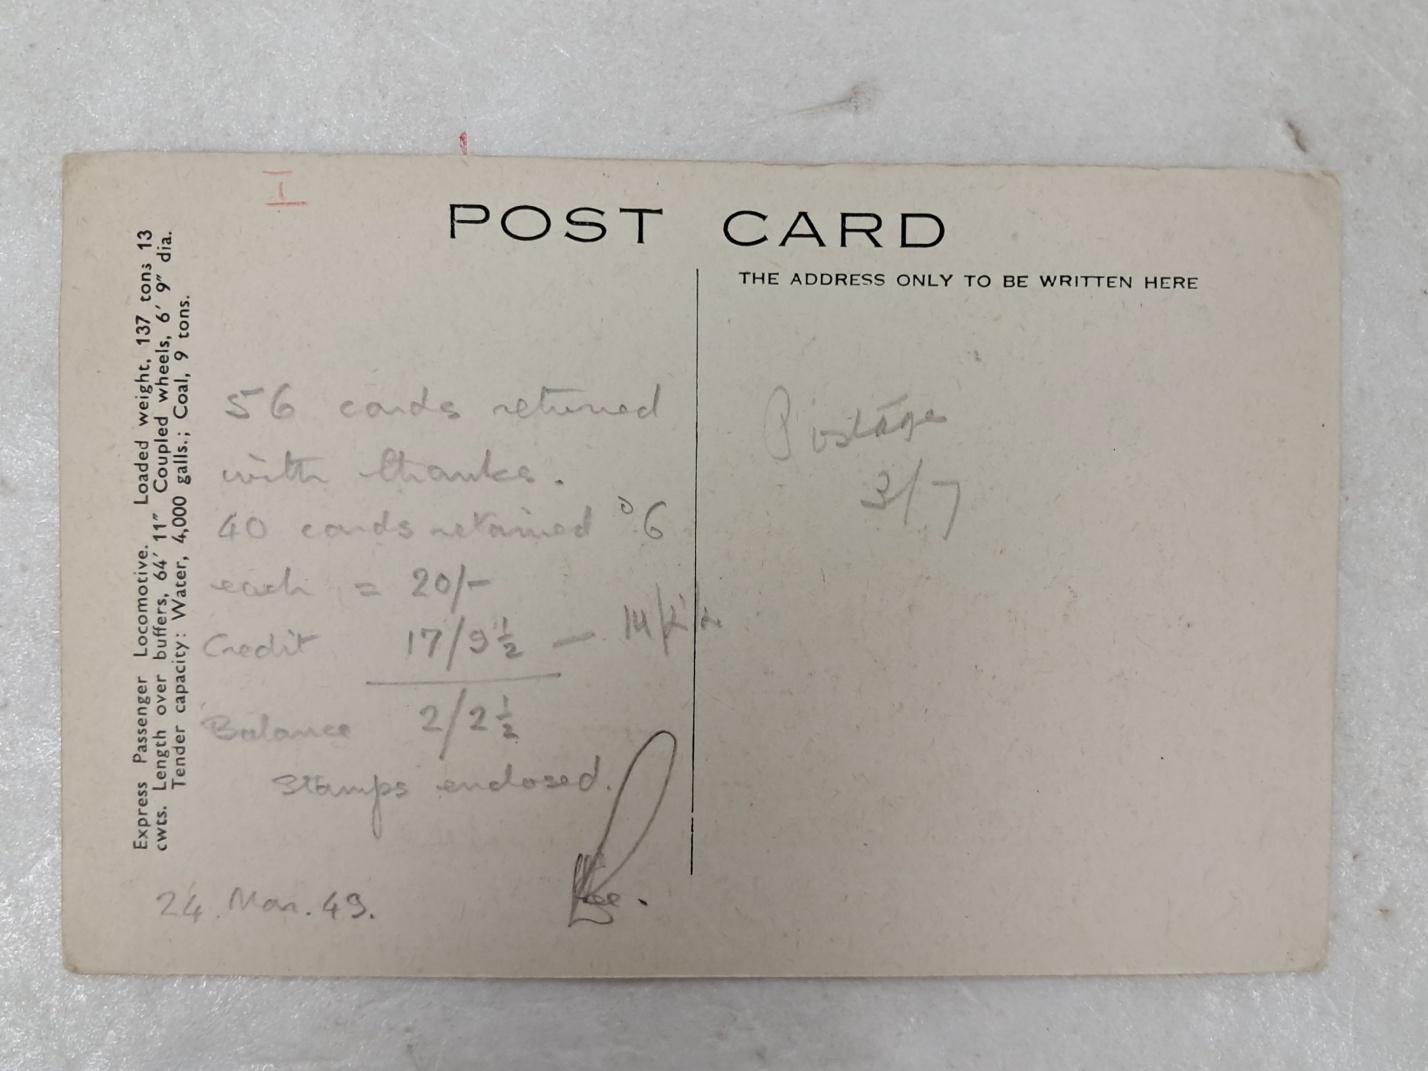 I
POST CARD
THE ADDRESS ONLY TO BE WRITTEN HERE
Express Passenger Locomotive. Loaded weight, 137 tons 13
cwts. Length over buffers, 64′ 11″ Coupled wheels, 6′ 9″ dia.
Tender capacity: Water, 4,000 galls.; Coal, 9 tons.
56 cards returned
with thanks.
40 cards retained 6
each = 20/-
Credit 17/9½ —
Balance 2/2½
stamps enclosed.
24. Mar. 49.
Postage
3/7